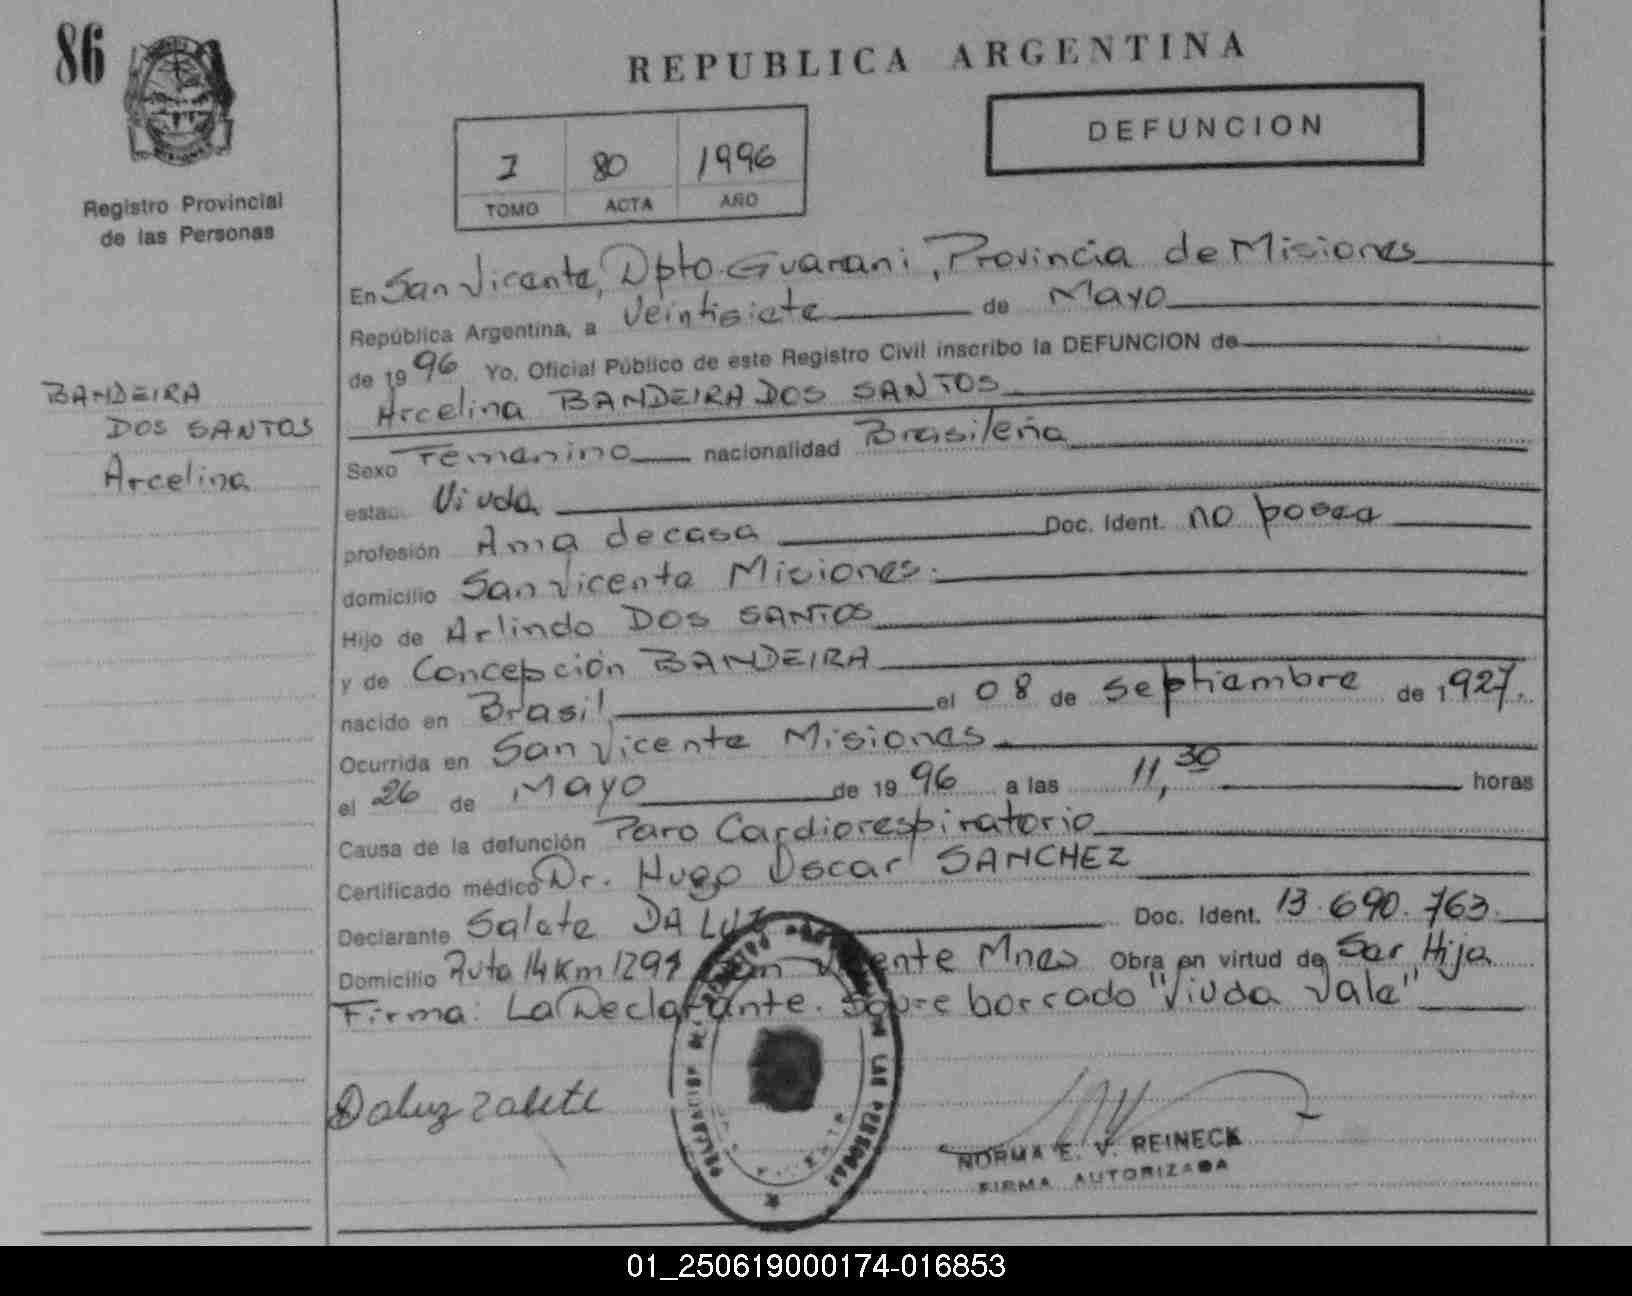 86
REPUBLICA ARGENTINA
DEFUNCION
I 80 1996
TOMO ACTA AÑO
Registro Provincial
de las Personas
BANDEIRA
DOS SANTOS
Arcelina
En San Vicente, Dpto. Guarani, Provincia de Misiones
República Argentina, a Veintisiete de Mayo
de 1996 Yo, Oficial Público de este Registro Civil inscribo la DEFUNCION de
Arcelina BANDEIRA DOS SANTOS
Sexo Femenino nacionalidad Brasileña
estado Viuda
profesión Ama de casa Doc. Ident. no posee
domicilio San Vicente Misiones.
Hijo de Arlindo DOS SANTOS
y de Concepción BANDEIRA
nacido en Brasil el 08 de Septiembre de 1927.
Ocurrida en San Vicente Misiones
el 26 de Mayo de 1996 a las 11,30 horas
Causa de la defunción Paro Cardiorespiratorio
Certificado médico Dr. Hugo Oscar SANCHEZ
Declarante Salete DA LUZ Doc. Ident. 13.690.763.
Domicilio Ruta 14 Km 1291 San Vicente Mnes Obra en virtud de Ser Hija
Firma: La Declarante. Sobre borrado "Viuda Vale"
Daluz Zalete
DELEGACION DEL REGISTRO PROVINCIAL DE LAS PERSONAS
NORMA E. V. REINECK
FIRMA AUTORIZADA
01_250619000174-016853